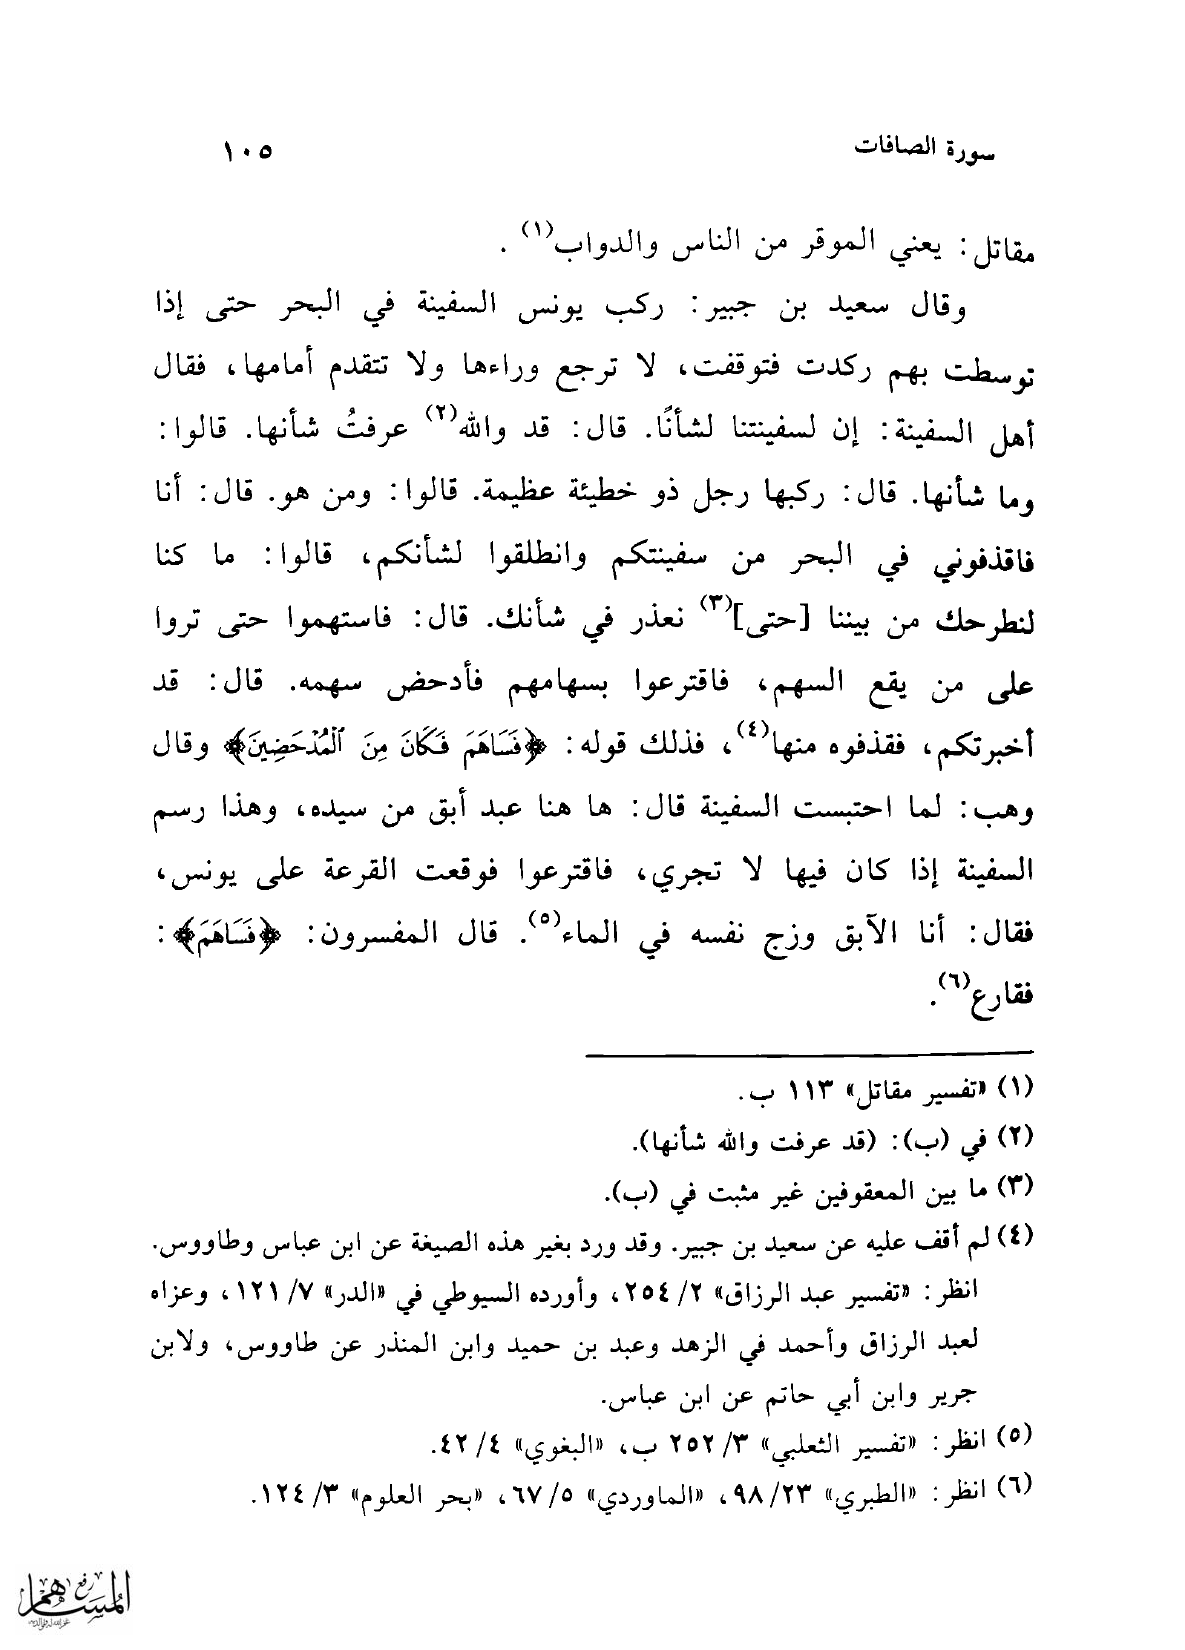 سورة الصافات ١٠٥
مقاتل: يعني الموقر من الناس والدواب(١).
وقال سعيد بن جبير: ركب يونس السفينة في البحر حتى إذا
توسطت بهم ركدت فتوقفت، لا ترجع وراءها ولا تتقدم أمامها، فقال
أهل السفينة: إن لسفينتنا لشأنًا. قال: قد والله(٢) عرفتُ شأنها. قالوا:
وما شأنها. قال: ركبها رجل ذو خطيئة عظيمة. قالوا: ومن هو. قال: أنا
فاقذفوني في البحر من سفينتكم وانطلقوا لشأنكم، قالوا: ما كنا
لنطرحك من بيننا [حتى](٣) نعذر في شأنك. قال: فاستهموا حتى تروا
على من يقع السهم، فاقترعوا بسهامهم فأدحض سهمه. قال: قد
أخبرتكم، فقذفوه منها(٤)، فذلك قوله: ﴿فَسَاهَمَ فَكَانَ مِنَ ٱلْمُدْحَضِينَ﴾ وقال
وهب: لما احتبست السفينة قال: ها هنا عبد أبق من سيده، وهذا رسم
السفينة إذا كان فيها لا تجري، فاقترعوا فوقعت القرعة على يونس،
فقال: أنا الآبق وزج نفسه في الماء(٥). قال المفسرون: ﴿فَسَاهَمَ﴾:
فقارع(٦).
(١) «تفسير مقاتل» ١١٣ ب.
(٢) في (ب): (قد عرفت والله شأنها).
(٣) ما بين المعقوفين غير مثبت في (ب).
(٤) لم أقف عليه عن سعيد بن جبير. وقد ورد بغير هذه الصيغة عن ابن عباس وطاووس.
انظر: «تفسير عبد الرزاق» ٢/ ٢٥٤، وأورده السيوطي في «الدر» ٧/ ١٢١، وعزاه
لعبد الرزاق وأحمد في الزهد وعبد بن حميد وابن المنذر عن طاووس، ولابن
جرير وابن أبي حاتم عن ابن عباس.
(٥) انظر: «تفسير الثعلبي» ٣/ ٢٥٢ ب، «البغوي» ٤/ ٤٢.
(٦) انظر: «الطبري» ٢٣/ ٩٨، «الماوردي» ٥/ ٦٧، «بحر العلوم» ٣/ ١٢٤.